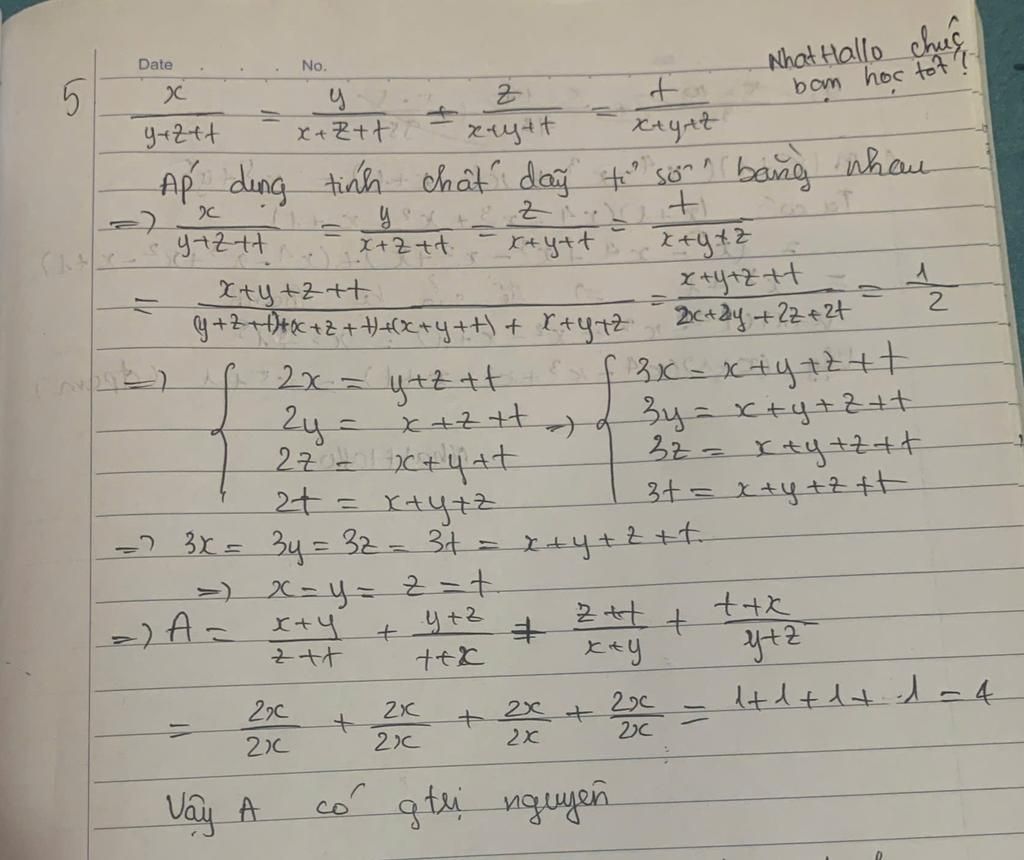 Date . . . No.
NhatHallo chúc
bạn học tốt!
5
x/(y+z+t) = y/(x+z+t) = z/(x+y+t) = t/(x+y+z)
Áp dụng tính chất dãy tỉ số bằng nhau
=> x/(y+z+t) = y/(x+z+t) = z/(x+y+t) = t/(x+y+z)
= (x+y+z+t)/((y+z+t)+(x+z+t)+(x+y+t) + x+y+z) = (x+y+z+t)/(2x+2y+2z+2t) = 1/2
=> { 2x = y+z+t => { 3x = x+y+z+t
2y = x+z+t 3y = x+y+z+t
2z = x+y+t 3z = x+y+z+t
2t = x+y+z 3t = x+y+z+t
=> 3x = 3y = 3z = 3t = x+y+z+t.
=> x = y = z = t
=> A = (x+y)/(z+t) + (y+z)/(t+x) + (z+t)/(x+y) + (t+x)/(y+z)
= 2x/2x + 2x/2x + 2x/2x + 2x/2x = 1+1+1+1 = 4
Vậy A có gtrị nguyên